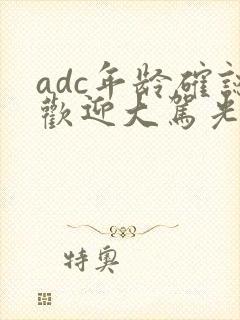 adc年龄確認
歡迎大駕光
特奧